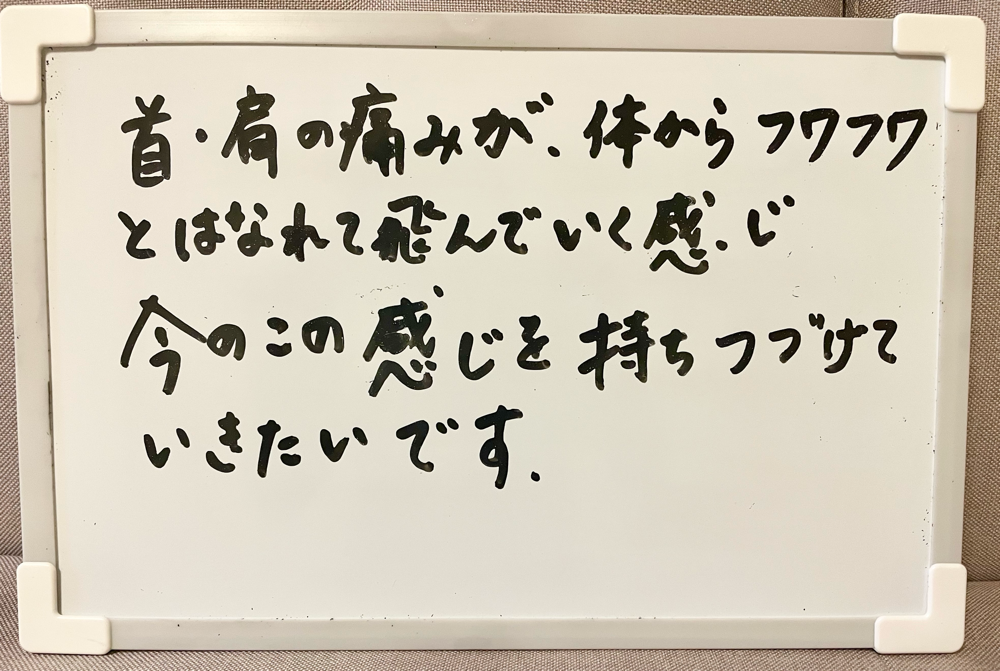 首・肩の痛みが、体からフワフワ
とはなれて飛んでいく感じ
今のこの感じを持ちつづけて
いきたいです.